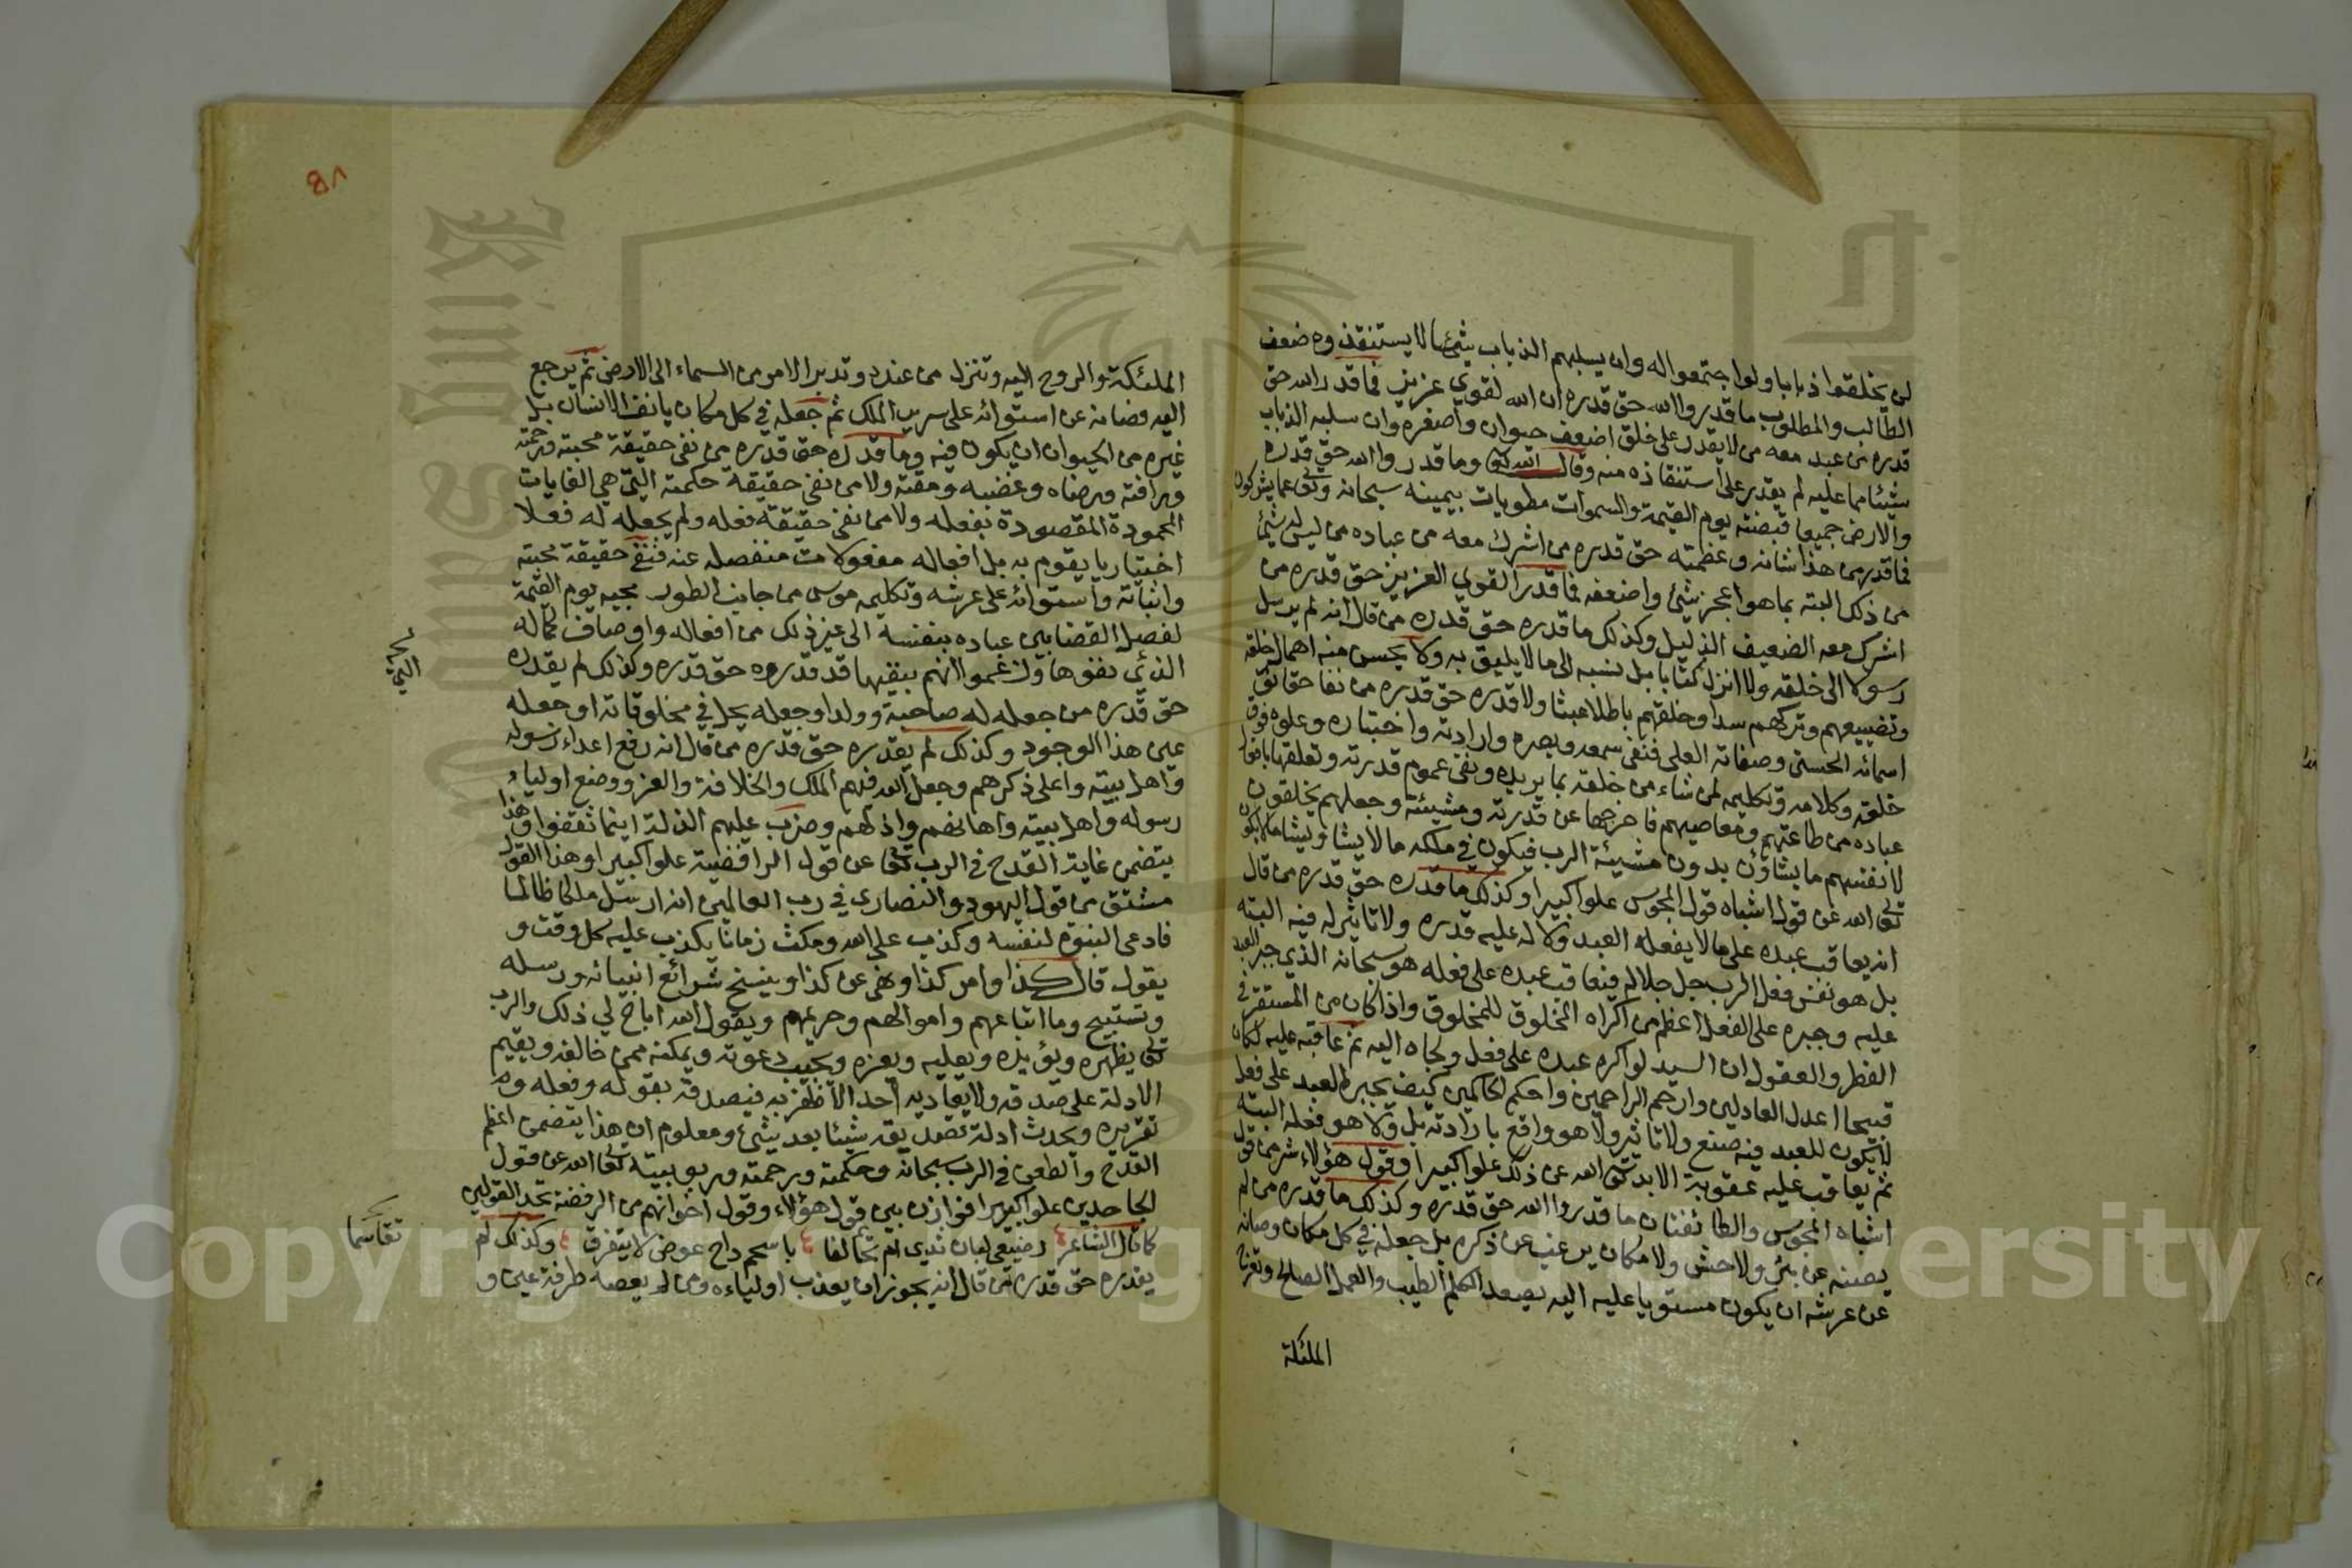 لن يخلقوا ذبابا ولو اجتمعوا له وان يسلبهم الذباب شيئا لا يستنقذوه ضعف
الطالب والمطلوب ما قدروا الله حق قدره ان الله لقوي عزيز فما قدر الله حق
قدره من عبد معه من لا يقدر على خلق اضعف حيوان واصغره وان سلبه الذباب
شيئا مما عليه لم يقدر على استنقاذه منه وقال الله تعا وما قدروا الله حق قدره
والارض جميعا قبضته يوم القيمة والسموات مطويات بيمينه سبحانه وتعا عما يشركون
فما قدر من هذا شانه وعظمته حق قدره من اشرك معه من عباده من ليس له شيئ
من ذلك البتة بما هو اعجز شيئ واضعفه فما قدر القوي العزيز حق قدره من
اشرك معه الضعيف الذليل وكذلك ما قدره حق قدره من قال انه لم يرسل
رسولا الى خلقه ولا انزل كتابا بل نسبه الى ما لا يليق به ولا يحسن منه اهمال خلقه
وتضييعهم وتركهم سدا وخلقهم باطلا عبثا ولا قدره حق قدره من نفا حقائق
اسمائه الحسنى وصفاته العلى فنفى سمعه وبصره وارادته واختياره وعلوه فوق
خلقه وكلامه وتكليمه لمن شاء من خلقه بما يريده ونفى عموم قدرته وتعلقها بافعال
عباده من طاعتهم ومعاصيهم فاخرجها عن قدرته ومشيئته وجعلهم يخلقون
لانفسهم ما يشاؤن بدون مشيئة الرب فيكون في ملكه ما لا يشا ويشا ما لا يكون
تعا الله عن قول اشباه قول المجوس علوا كبيرا وكذلك ما قدره حق قدره من قال
انه يعاقب عبده على ما لا يفعله العبد ولا له عليه قدره ولا تاثير له فيه البتة
بل هو نفس فعل الرب جل جلاله فيعاقب عبده على فعله هو سبحانه الذي جبر العبد
عليه وجبره على الفعل اعظم من اكراه المخلوق للمخلوق واذا كان من المستقر في
الفطر والعقول ان السيد لو اكره عبده على فعل ولجاه اليه ثم عاقبه عليه لكان
قبيحا اعدل العادلين وارحم الراحمين واحكم الحاكمين كيف يجبر العبد على فعل
لا يكون للعبد فيه صنع ولا تاثير ولا هو واقع بارادته بل ولا هو فعله البتة
ثم يعاقب عليه عقوبة الابد تعا الله عن ذلك علوا كبيرا وقول هؤلاء شر من قول
اشباه المجوس والطائفتان ما قدروا الله حق قدره وكذلك ما قدره من لم
يصنه عن بئر ولا حش ولا مكان يرغب عن ذكره بل جعله في كل مكان وصانه
عن عرشه ان يكون مستويا عليه اليه يصعد الكلم الطيب والعمل الصالح وتعرج
الملئكة
٨١
الملئكة والروح اليه وتنزل من عنده وتدبر الامر من السماء الى الارض ثم يرجع
اليه فصانه عن استوائه على سرير الملك ثم جعله في كل مكان يانف الانسان بل
غيره من الحيوان ان يكون فيه وما قدره حق قدره من نفى حقيقة محبته ورحمته
ورافته ورضاه وغضبه ومقته ولا من نفى حقيقة حكمته التي هي الغايات
المحمودة المقصودة بفعله ولا من نفى حقيقة فعله ولم يجعله له فعلا
اختياريا يقوم به بل افعاله مفعولات منفصله عنه فنفى حقيقة محبته
واتيانه واستوائه على عرشه وتكليمه موسى من جانب الطور مجيه يوم القيمة
لفصل القضا بين عباده بنفسه الى غير ذلك من افعاله واوصاف كماله
التي
الذي نفوها وزعموا انهم بنفيها قد قدروه حق قدره وكذلك لم يقدره
حق قدره من جعله له صاحبة وولدا وجعله يحل في مخلوقاته او جعله
عين هذا الوجود وكذلك لم يقدره حق قدره من قال انه رفع اعداء رسوله
واهل بيته واعلى ذكرهم وجعل الله فيهم الملك والخلافة والعز ووضع اولياء
رسوله واهل بيته واهانهم واذلهم وضرب عليهم الذلة اينما ثقفوا وهذا
يتضمن غاية القدح في الرب تعا عن قول الرافضية علوا كبيرا وهذا القول
مشتق من قول اليهود والنصارى في رب العالمين انه ارسل ملكا ظالما
فادعى النبوة لنفسه وكذب على الله ومكث زمانا يكذب عليه كل وقت و
يقول قال كذا وامر كذا ونهى عن كذا وينسخ شرائع انبيائه ورسله
وتستبيح دماء اتباعهم واموالهم وحريمهم ويقول الله اباح لي ذلك والرب
تعا يظهره ويؤيده ويعليه ويعزه ويجيب دعوته ويمكنه ممن خالفه ويقيم
الادلة على صدقه ولا يعاديه احد الا ظفر به فيصدقه بقوله وفعله و
تقريره ويحدث ادلة تصديقه شيئا بعد شيئ ومعلوم ان هذا يتضمن اعظم
القدح والطعن في الرب سبحانه وحكمته ورحمته وربوبيته تعا الله عن قول
الجاحدين علوا كبيرا فوازن بين قول هؤلاء وقول اخوانهم من الرافضة تجد القولين
كما قال الشاعر رضيعي لبان ثدي ام تحالفا باسحم داج عوض لا يتفرق وكذلك لم
تقاسما
يقدره حق قدره من قال انه يجوز ان يعذب اولياءه ومن لم يعصه طرفة عين و
Copyright © King Saud University